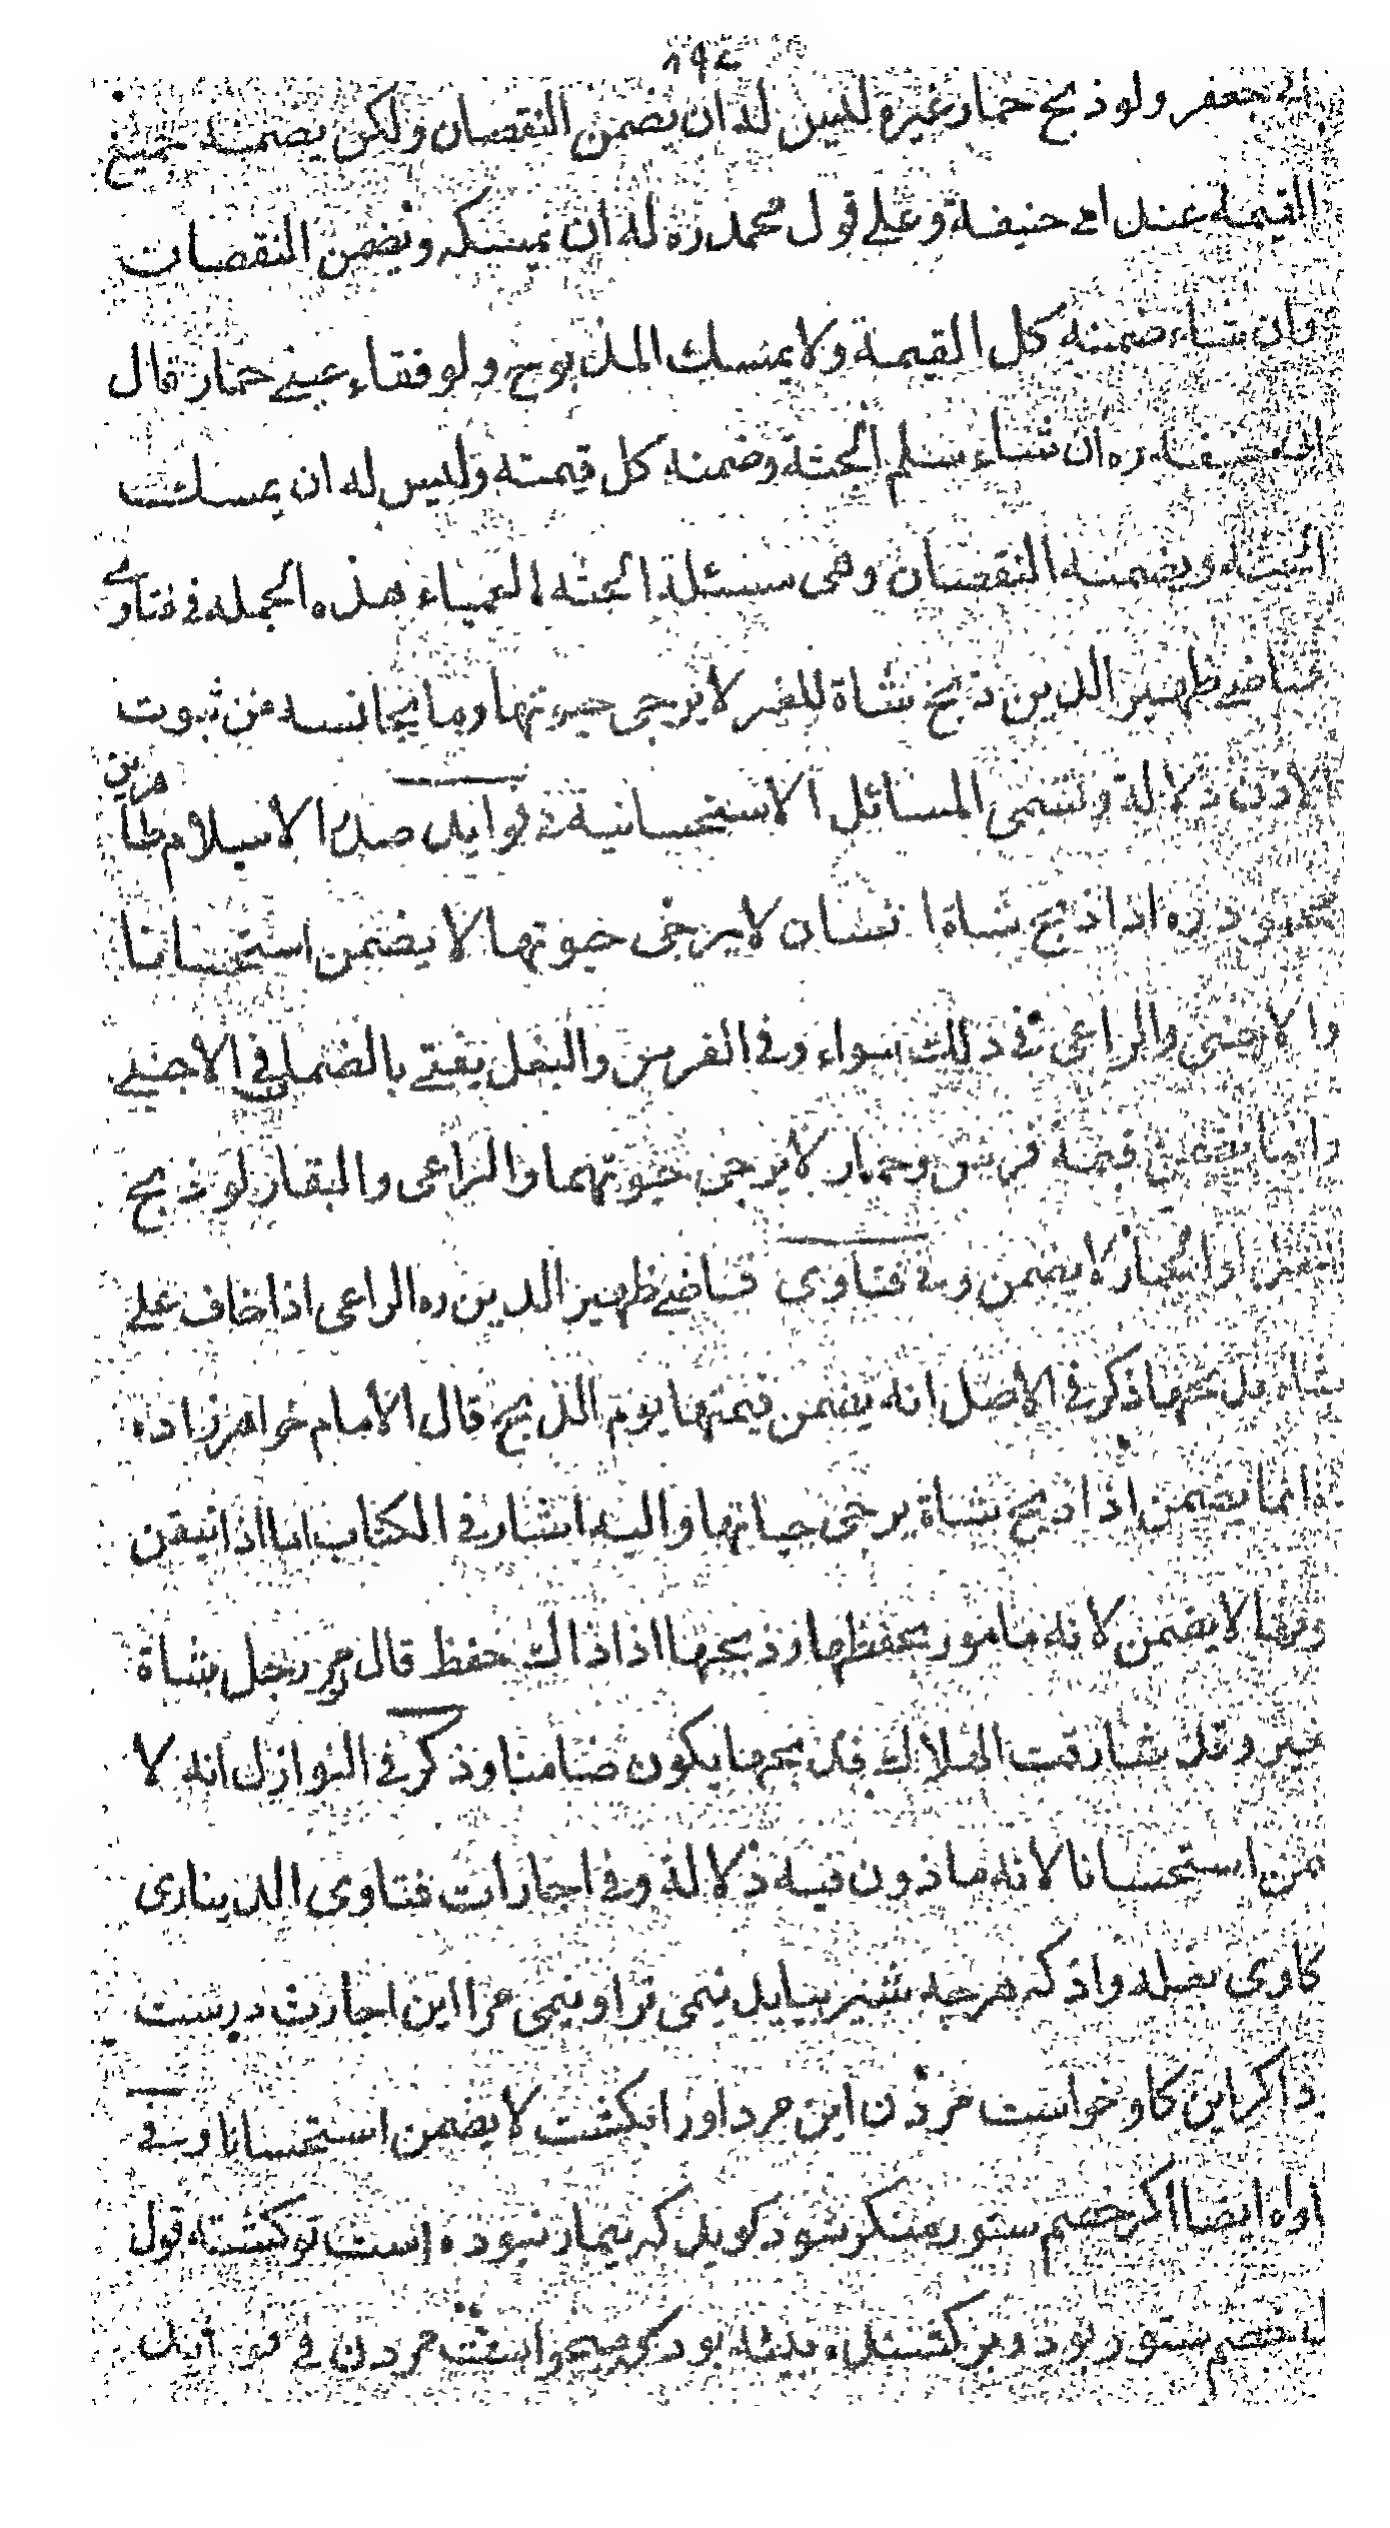 جعفر ولو ذبح حمار غيره ليس له ان يضمن النقصان ولكن يضمنه جميع
القيمة عند ابي حنيفة وعلى قول محمد ره له ان يمسكه ويضمن النقصان
وان شاء ضمنه كل القيمة ولا يمسك المذبوح ولو فقاء عيني حمار قال
ابو حنيفة ره ان شاء سلم الجثة وضمنه كل قيمته وليس له ان يمسك
الجثة ويضمنه النقصان وهى مسئلة الجثه العمياء هذه الجمله فى فتاوى
قاضى ظهير الدين ذبح شاة للغير لا يرجى حيوتها وما يجانسه من ثبوت
الاذن دلالة وتسمى المسائل الاستحسانية فى فوايد صدر الاسلام طاهر بن
محمود ره اذا ذبح شاة انسان لا يرجى حيوتها لا يضمن استحسانا
والاجنبى والراعى فى ذلك سواء وفى الفرس والبغل يفتى بالضمان فى الاجنبى
وانما يضمن قيمة فرس وحمار لا يرجى حيوتهما والراعى والبقار لو ذبح
او الحمار لا يضمن وفى فتاوى قاضى ظهير الدين ره الراعى اذا خاف على
شاة فذبحها ذكر فى الاصل انه يضمن قيمتها يوم الذبح قال الامام خواهر زاده
وانما يضمن اذا ذبح شاة يرجى حياتها واليه اشار فى الكتاب اما اذا تيقن
موتها لا يضمن لانه مامور بحفظها وذبحها اذ ذاك حفظ قال رجل شاة
غير وقد شارفت الهلاك فذبحها يكون ضامنا وذكر فى النوازل انه لا
يضمن استحسانا لانه ماذون فيه دلالة وفى اجارات فتاوى الدينارى
كاوى بعله داد كه هرچه شير بيايد نيمى ترا ونيمى مرا اين اجارت درست
واكر اين كاو خواست مردن اين مرد اورا كشت لا يضمن استحسانا وفى
ايضا اكر خصم ستور منكر شود كويد كه بيمار نبوده است تو كشته قول
خصم ستور بود وبر كشنده بينه بود كه ميخواست مردن فى فوايد